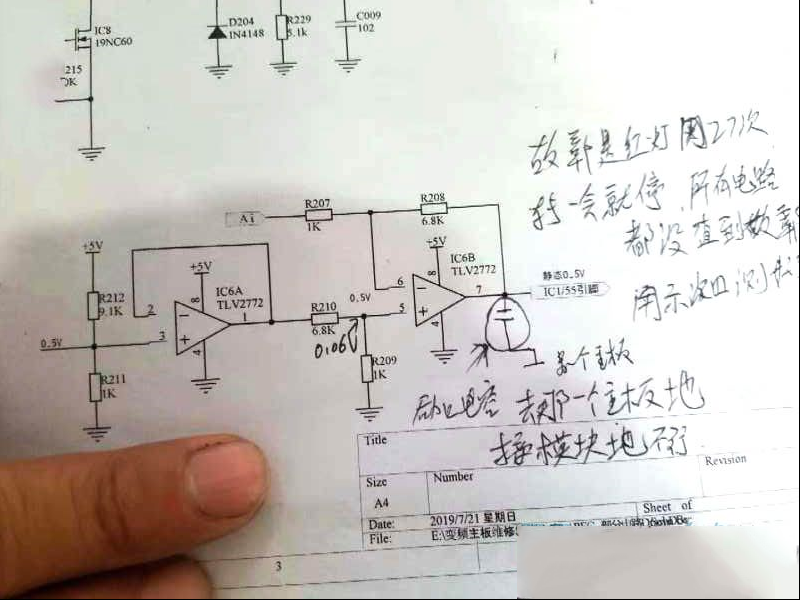 IC8
19NC60
D204
1N4148
R229
5.1k
C009
102
215
0K
故障是红灯闪27次
转一会就停.所有电路
都没查到故障
R207
A1
1K
R208
6.8K
+5V
+5V
+5V
IC6A
TLV2772
IC6B
TLV2772
R212
9.1K
8
2
1
3
4
R210
6.8K
0.5V
0.06
6
8
7
5
4
静态0.5V
IC1/55引脚
0.5V
R211
1K
R209
1K
另一个主板
去那一个主板地
接模块地不行
Title
Size
A4
Number
Revision
Date:
2019/7/21 星期日
Sheet of
File:
E:\变频主板维修
3